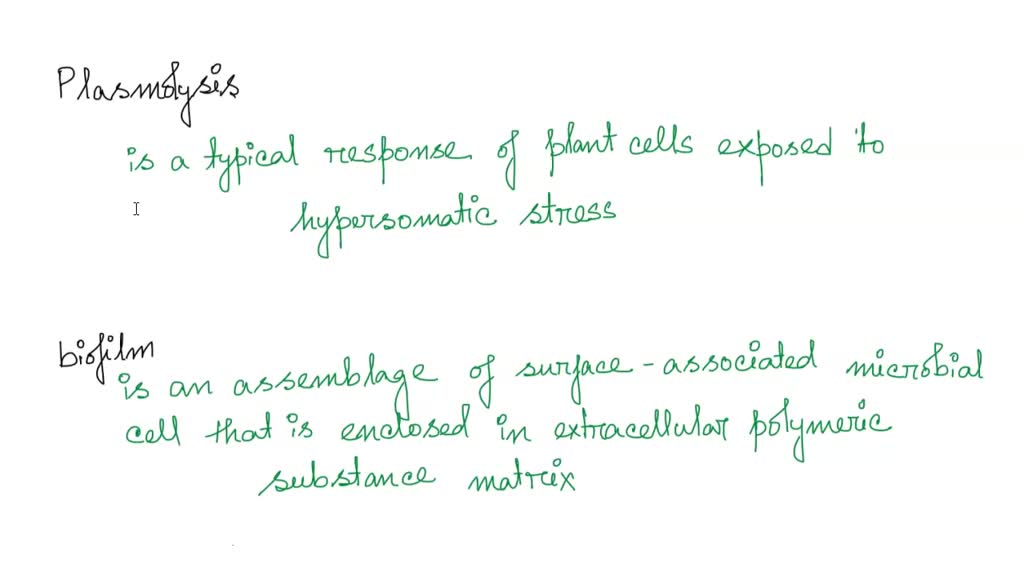 Plasmolysis
is a typical response of plant cells exposed to
hypersomatic stress
biofilm
is an assemblage of surface-associated microbial
cell that is enclosed in extracellular polymeric
substance matrix